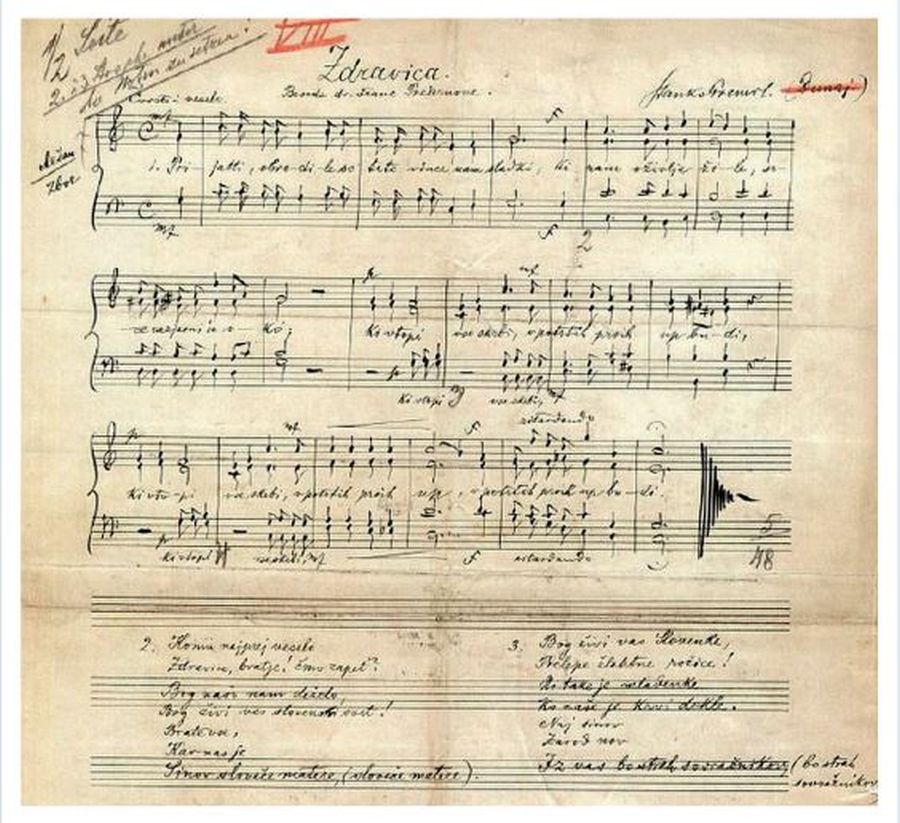 1/2
VIII
Zdravica.
Besede dr. France Prešernove.
Stanko Premrl. (Dunaj)
Mešan
zbor
mf
1. Pri jatli, obro-di-le so trte vince nam sladkó, ki nam oživlja ži-le, sr-
mf f
2
p mf
ce razjasni in o-kó; Ki vtopi vse skrbi, v potrtih prsih up bu-di,
p
Ki vtopi vse skrbi, mf
p mf f ritardando
Ki vto-pi vse skrbi, v potrtih prsih up, v potrtih prsih up bu-di.
p
Ki vtopi vse skrbi, mf f ritardando
5
48
2. Komu najprej veselo
Zdravico, bratje! čmo zapet'?
Bog našo nam deželo,
Bog živi ves slovenski svet!
Brate vse,
Kar nas je
Sinov slovéče matere, (slovéče matere).
3. Bog živi vas Slovenke,
Prelepe žlahtne rožice!
Ni take je mladenke,
Ko naše je krvi dekle.
Naj sinov
Zarod nov
Iz vas bo strah sovražnikov, (bo strah
sovražnikov